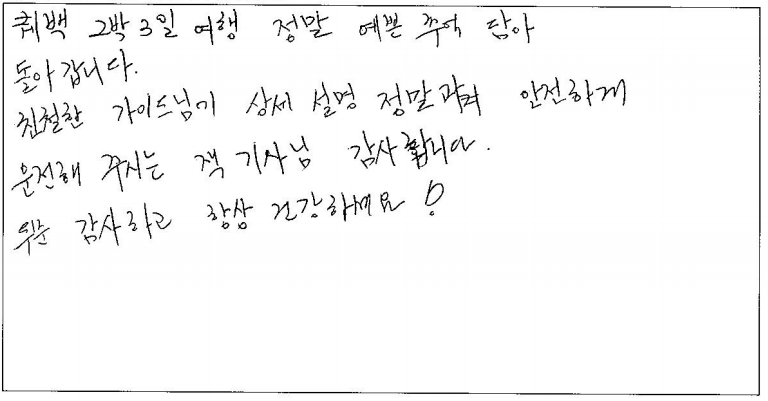 퀘백 2박 3일 여행 정말 예쁜 추억 담아
돌아갑니다.
친절한 가이드님기 상세 설명 정말 안전하게
운전해 주시는 잭 기사님 감사합니다.
감사하고 항상 건강하세요!